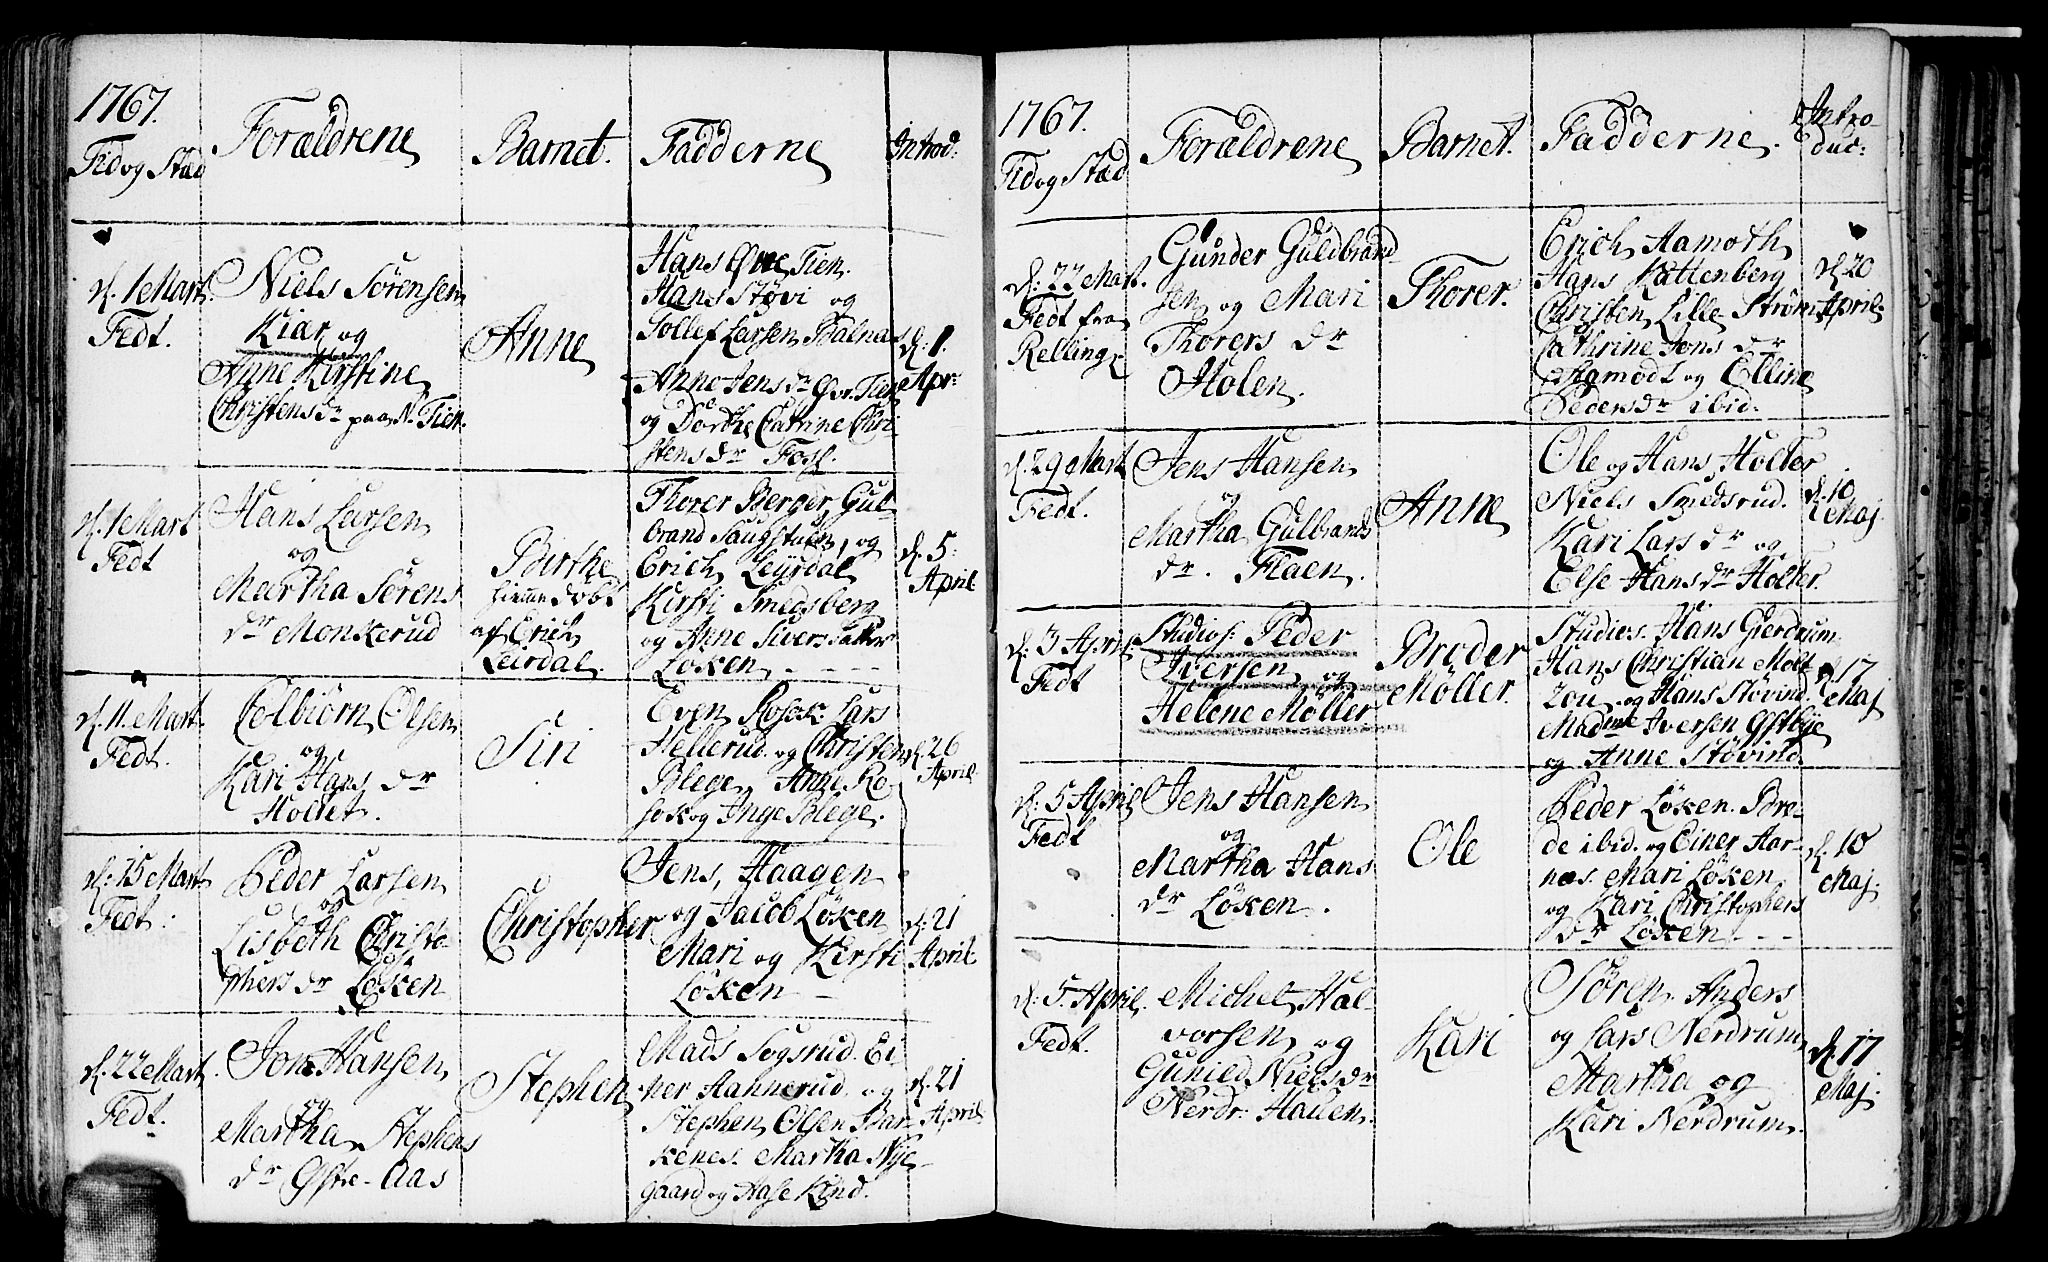 1767.
Tid og Stæd
Forældrene
Barnet.
Fadderne
Introd:
d. 1 Mart.
Fedt.
Niels Sörensen
Kiær og
Anne Kirstine
Christens dr paa N. Tien.
Anne
Hans Øvre Tien.
Hans Støvi og
Tollef Larsen Balnas
Anne Jens dr Øvr. Tien
og Dorthe Catrine Chri
stens dr Foss.
d. 1.
Apr:
d. 1 Mart
Fedt
Hans Larsen
og
Martha Sörens
dr Monkerud
Birthe
hiemme döbt
af Erich
Leirdal.
Thorer Berger, Gul
brand Saugstuen, og
Erich Leyrdal
Kirsti Smedsberg
og Anne Sivers datter
Löken
d. 5.
April
d. 11. Mart.
Fedt.
Colbiörn Olsen
og
Kari Hans dr
Holtet.
Siri
Even Kosok. Lars
Hellerud. og Christen
Blege, Anne Ko
sok og Inge Blege.
d. 26
April.
d. 15 Mart
Fedt.
Peder Larsen
og
Lisbeth Christo
phers dr Löken
Christopher
Jens, Haagen
og Jacob Löken
Mari og Kirsti
Löken
d. 21
April.
d. 22 Mart.
Fedt.
Jon Hansen
og
Martha Stephens
dr Østre-Aas
Stephen
Mads Sogsrud. Ei
ner Aannerud. og
Stephen Olsen Bar
kenes. Martha Nye
gaard og Aase Kind.
d. 21
April
1767.
Tid og Stæd
Forældrene
Barnet.
Fadderne.
Intro-
duc:
d. 22 Mart.
Fedt fra
Relling
Gunder Guldbrand
sen og Mari
Thorers dr
Holen.
Thorer.
Erich Aamoth
Hans Kattenberg
Christen Lille Ström
Cathrine Jons dr
Aamodt og Elline
Peders dr ibid.
d. 20
April.
d. 29 Mart
Fedt.
Jens Hansen
og
Martha Gulbrands
dr. Flaen.
Anne
Ole og Hans Holter
Niels Smedsrud.
Kari Lars dr og
Else Hans dr Holter.
d. 10
Maj.
d. 3 April.
Fedt
Studios: Peder
Iversen og
Helene Möller
Broder
Möller.
Studios. Hans Gierdrum
Hans Christian Molt
zou. og Hans Støvind.
Madme Iversen Østbye
og Anne Støvind.
d. 17
Maj
d. 5 April
Fedt
Jens Hansen
og
Martha Hans
dr Löken.
Ole
Peder Löken. Bre
de ibid. og Einer Aar-
nes. Mari Löken
og Kari Christophers
dr Löken
d. 10
Maj.
d. 5. April.
Fedt.
Michel Hal-
vorsen og
Gunied Niels dr
Nerdr. Hauen.
Kari
Sören. Anders
og Lars Nerdrum
Martha og
Kari Nerdrum.
d. 17
Maj.